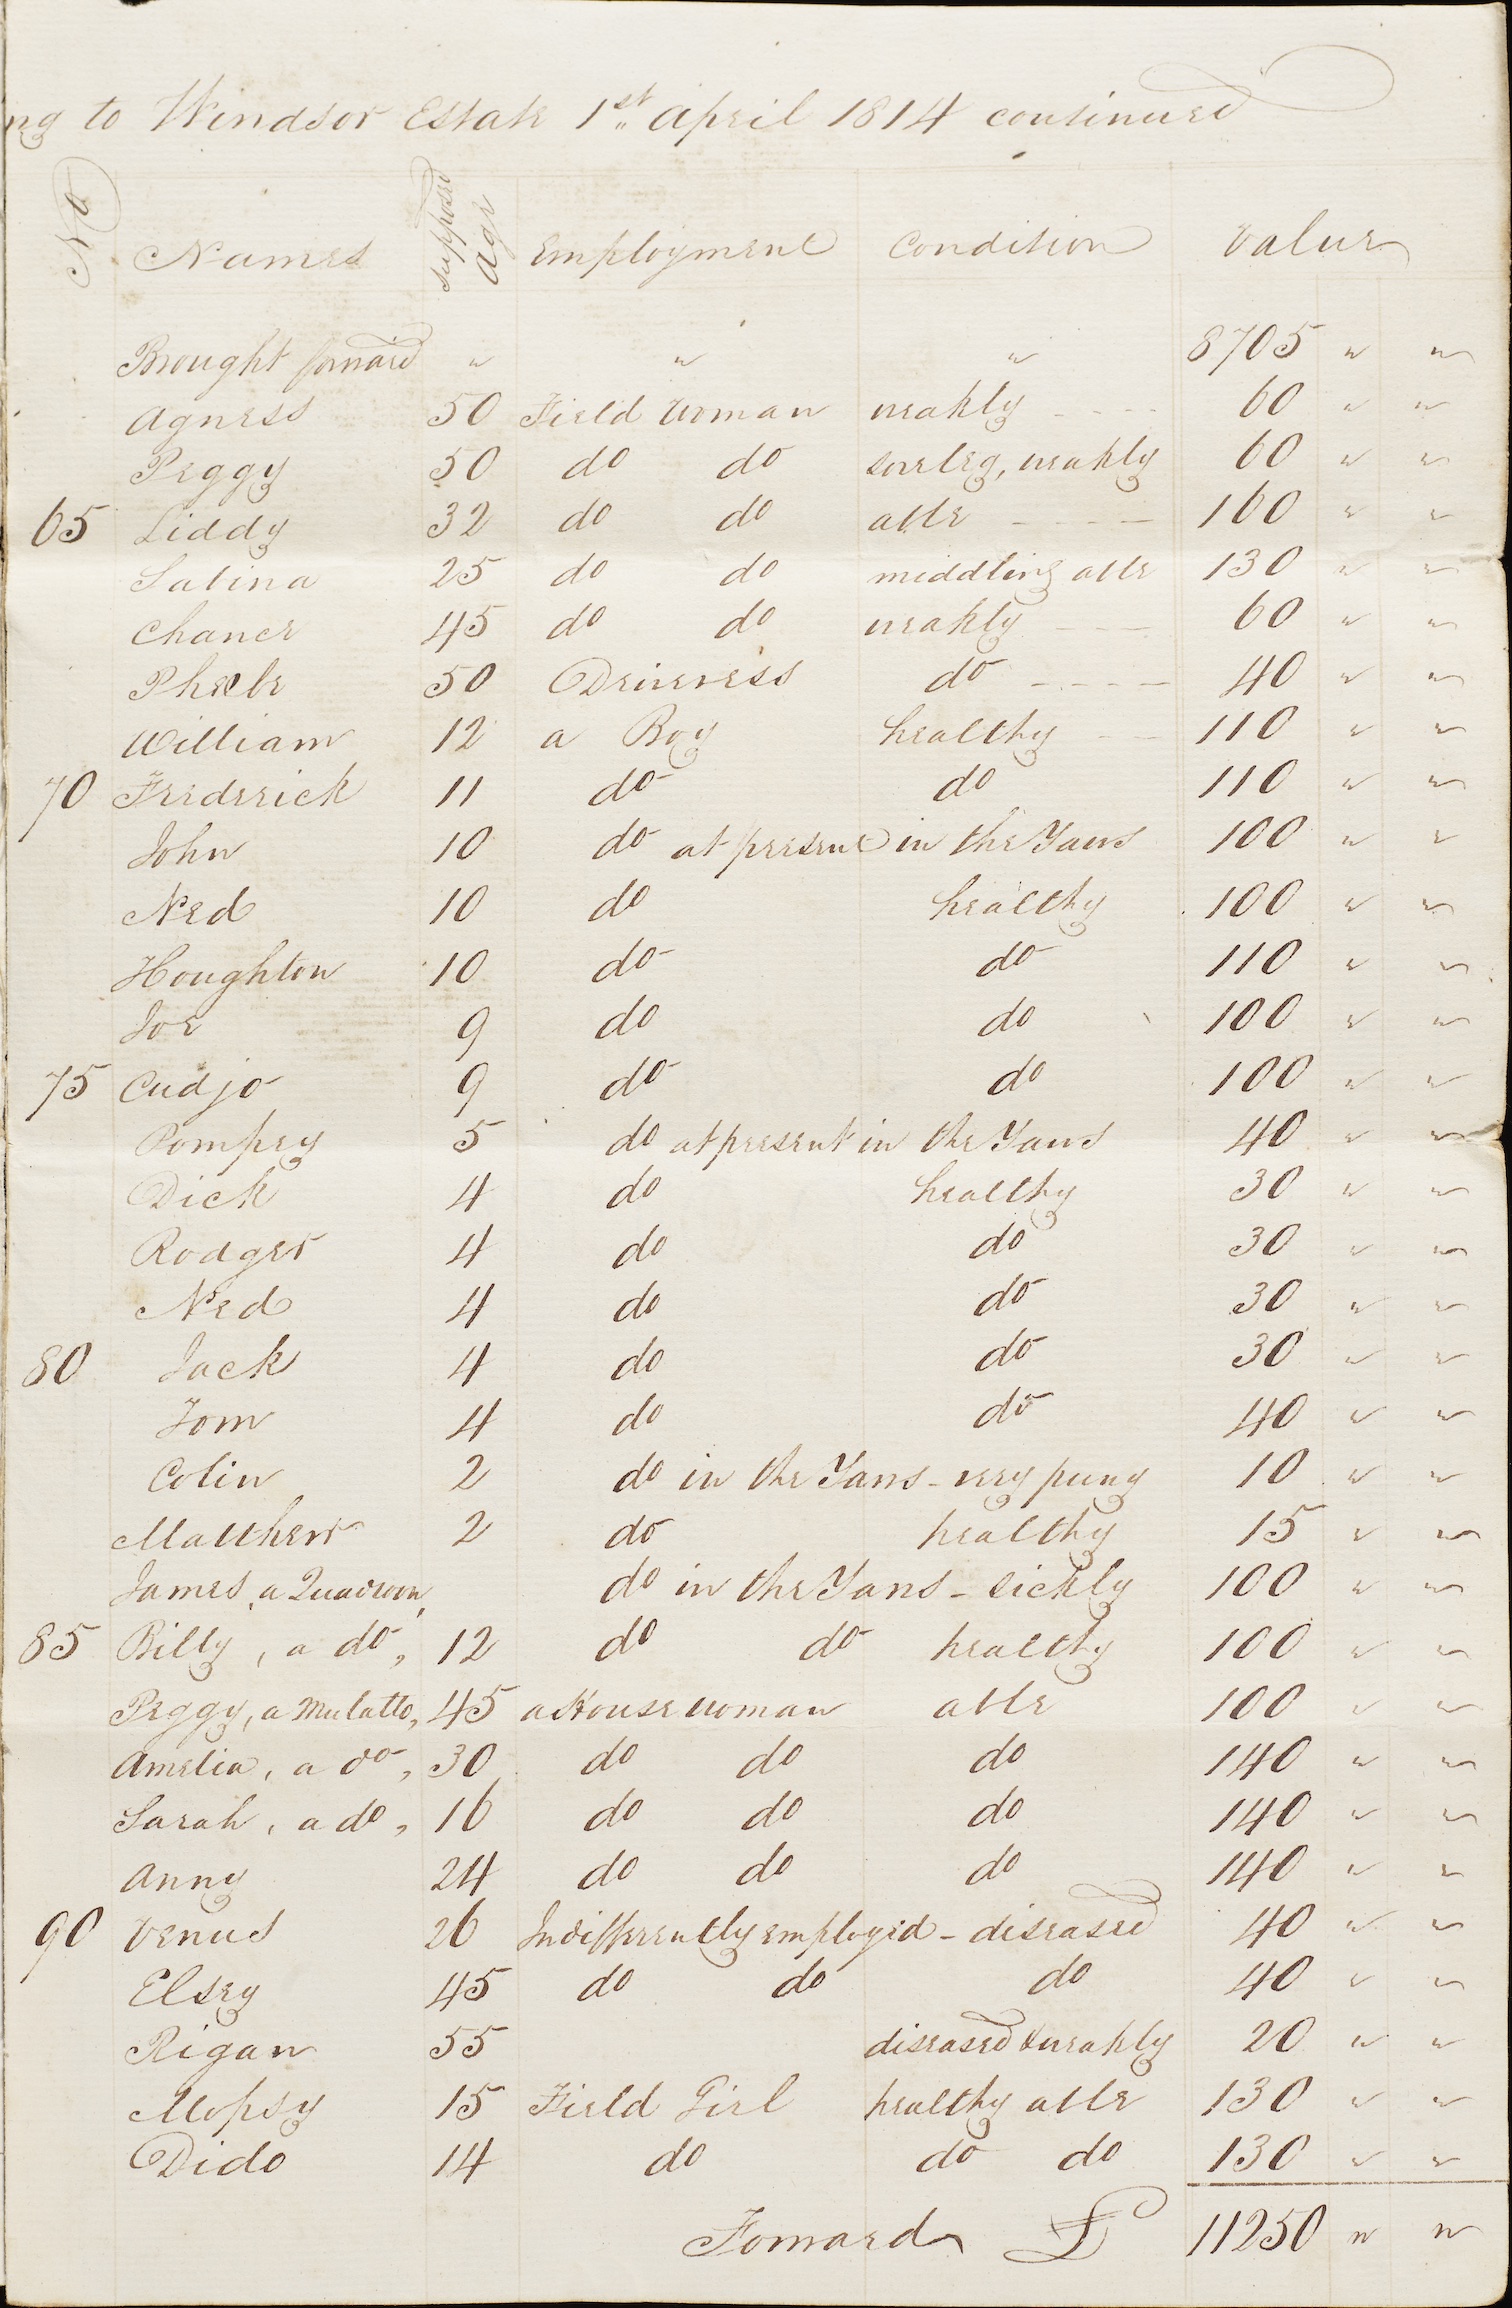 ng to Windsor Estate 1st April 1814 continued
No Names supposed age Employment Condition Value
Brought forward " " " 8705 " "
Agness 50 Field Woman weakly - - - - 60 " "
Peggy 50 do do sore leg, weakly 60 " "
65 Liddy 32 do do able - - - - 160 " "
Sabina 25 do do middling able 130 " "
Chance 45 do do weakly - - - 60 " "
Phebe 50 Driveress do - - - - 40 " "
William 12 a Boy healthy - - 110 " "
70 Frederick 11 do do 110 " "
John 10 do at present in the Yaws 100 " "
Ned 10 do healthy 100 " "
Houghton 10 do do 110 " "
Joe 9 do do 100 " "
75 Cudjo 9 do do 100 " "
Pompey 5 do at present in the Yaws 40 " "
Dick 4 do healthy 30 " "
Rodger 4 do do 30 " "
Ned 4 do do 30 " "
80 Jack 4 do do 30 " "
Tom 4 do do 40 " "
Colin 2 do in the Yaws - very puny 10 " "
Matthew 2 do healthy 15 " "
James, a Quadroon, do in the Yaws - sickly 100 " "
85 Billy, a do, 12 do do healthy 100 " "
Peggy, a Mulatto, 45 a House woman able 100 " "
Amelia, a do, 30 do do do 140 " "
Sarah, a do, 16 do do do 140 " "
Anny 24 do do do 140 " "
90 Venus 26 Indifferently employed - diseased 40 " "
Elsey 45 do do do 40 " "
Rigan 55 diseased & weakly 20 " "
Mopsy 15 Field Girl healthy able 130 " "
Dido 14 do do do 130 " "
Forward £ 11250 " "